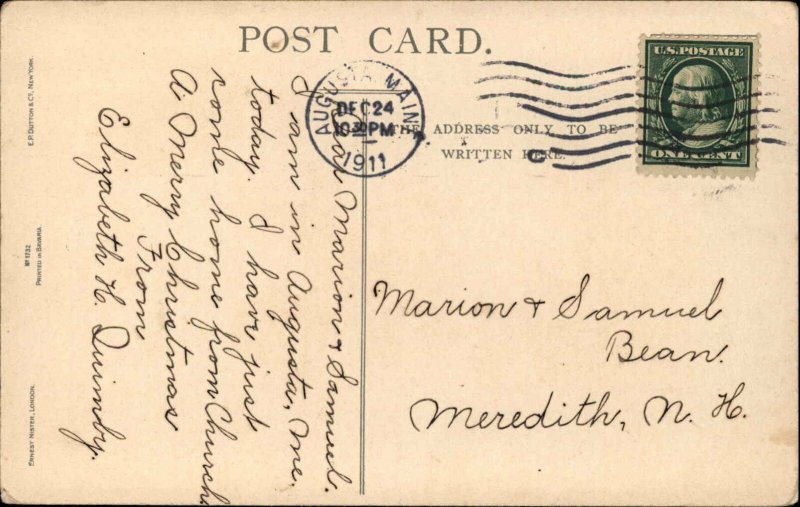 POST CARD.
THE ADDRESS ONLY TO BE
WRITTEN HERE.
AUGUSTA, MAINE
DEC 24
10 30 PM
1911
U.S. POSTAGE
ONE CENT
Marion & Samuel.
I am in Augusta, Me.
today. I have just
come home from Church.
A Merry Christmas
From
Elizabeth H. Quimby.
Marion & Samuel
Bean.
Meredith, N. H.
E.P. DUTTON & CO. NEW YORK.
No 1732
PRINTED IN BAVARIA.
ERNEST NISTER, LONDON.